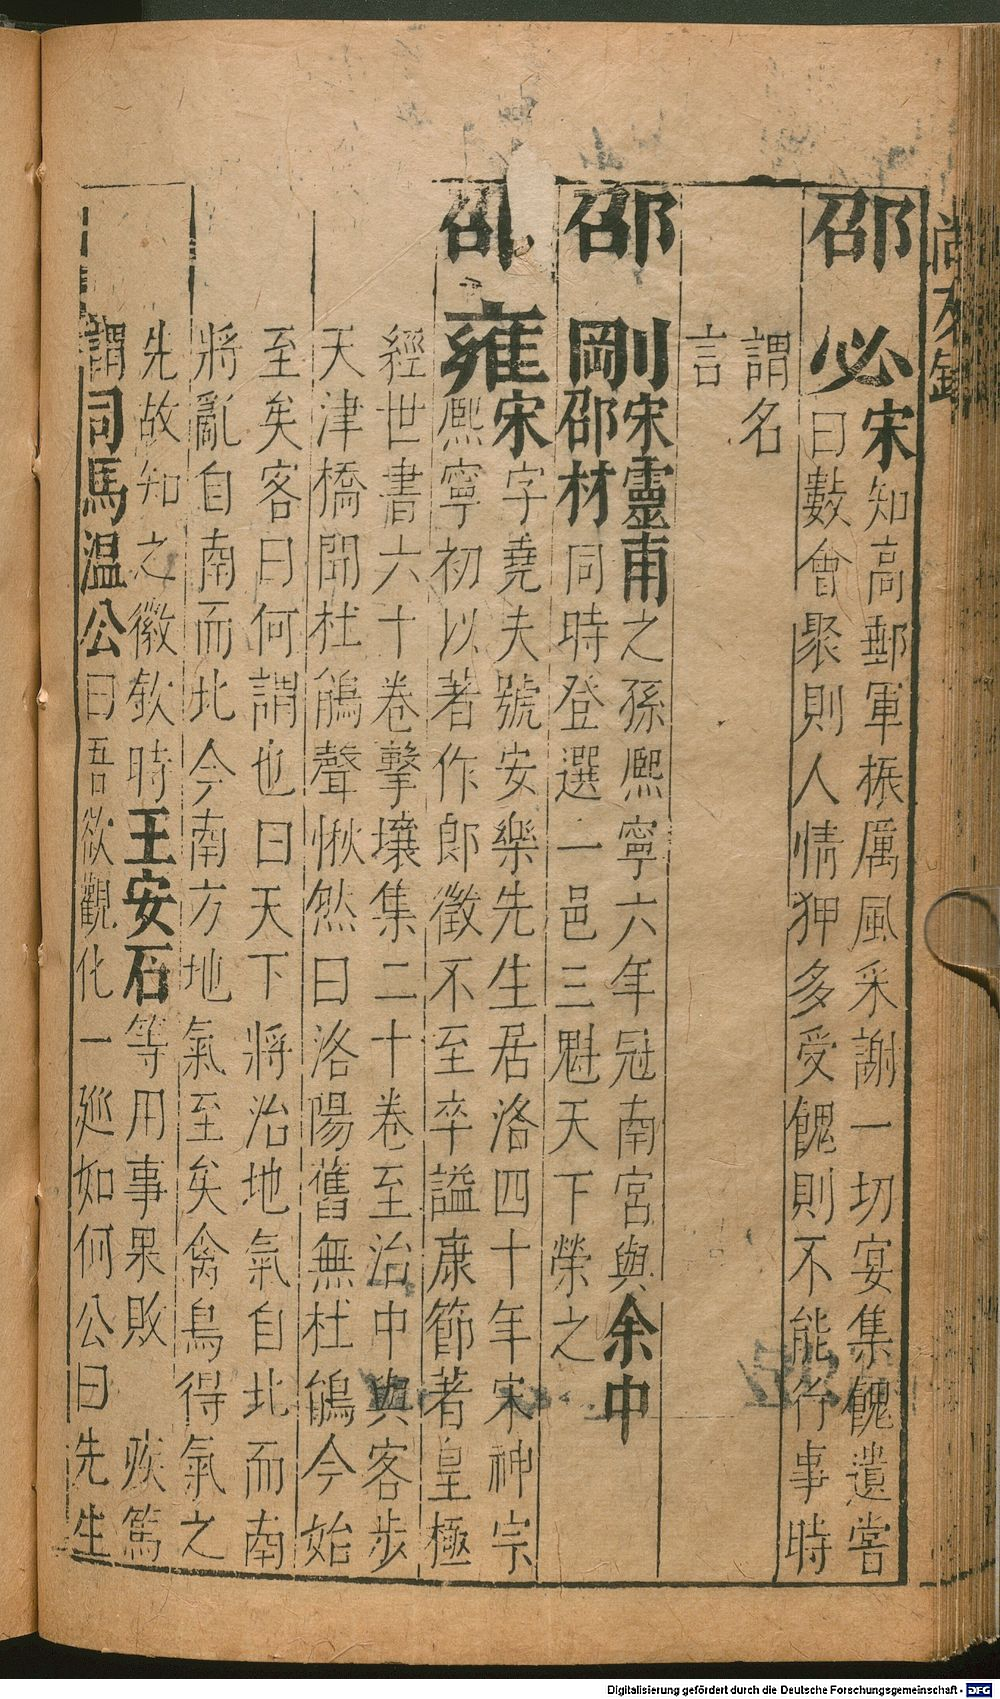 尚友錄
邵必宋知高郵軍振厲風采謝一切宴集餽遺嘗
曰數會聚則人情狎多受餽則不能行事時
謂名
言
邵剛宋靈甫之孫熙寧六年冠南宮與余中
邵材同時登選一邑三魁天下榮之
邵雍宋字堯夫號安樂先生居洛四十年宋神宗
熙寧初以著作郎徵不至卒謚康節著皇極
經世書六十卷擊壤集二十卷至治中與客步
天津橋聞杜鵑聲愀然曰洛陽舊無杜鵑今始
至矣客曰何謂也曰天下將治地氣自北而南
將亂自南而北今南方地氣至矣禽鳥得氣之
先故知之徽欽時王安石等用事果敗疾篤
謂司馬温公曰吾欲觀化一廵如何公曰先生
Digitalisierung gefördert durch die Deutsche Forschungsgemeinschaft - DFG